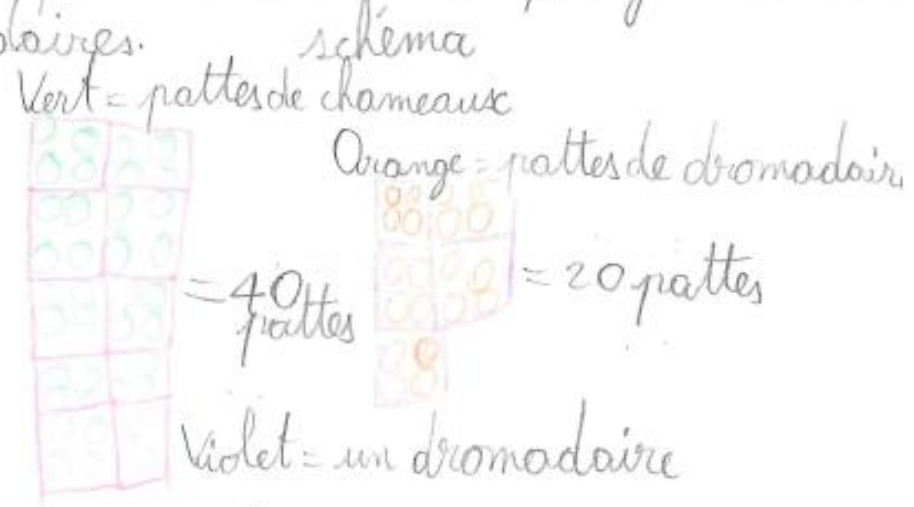 schéma
Vert = pattes de chameaux
Orange = pattes de dromadair
= 40 pattes
= 20 pattes
Violet = un dromadaire